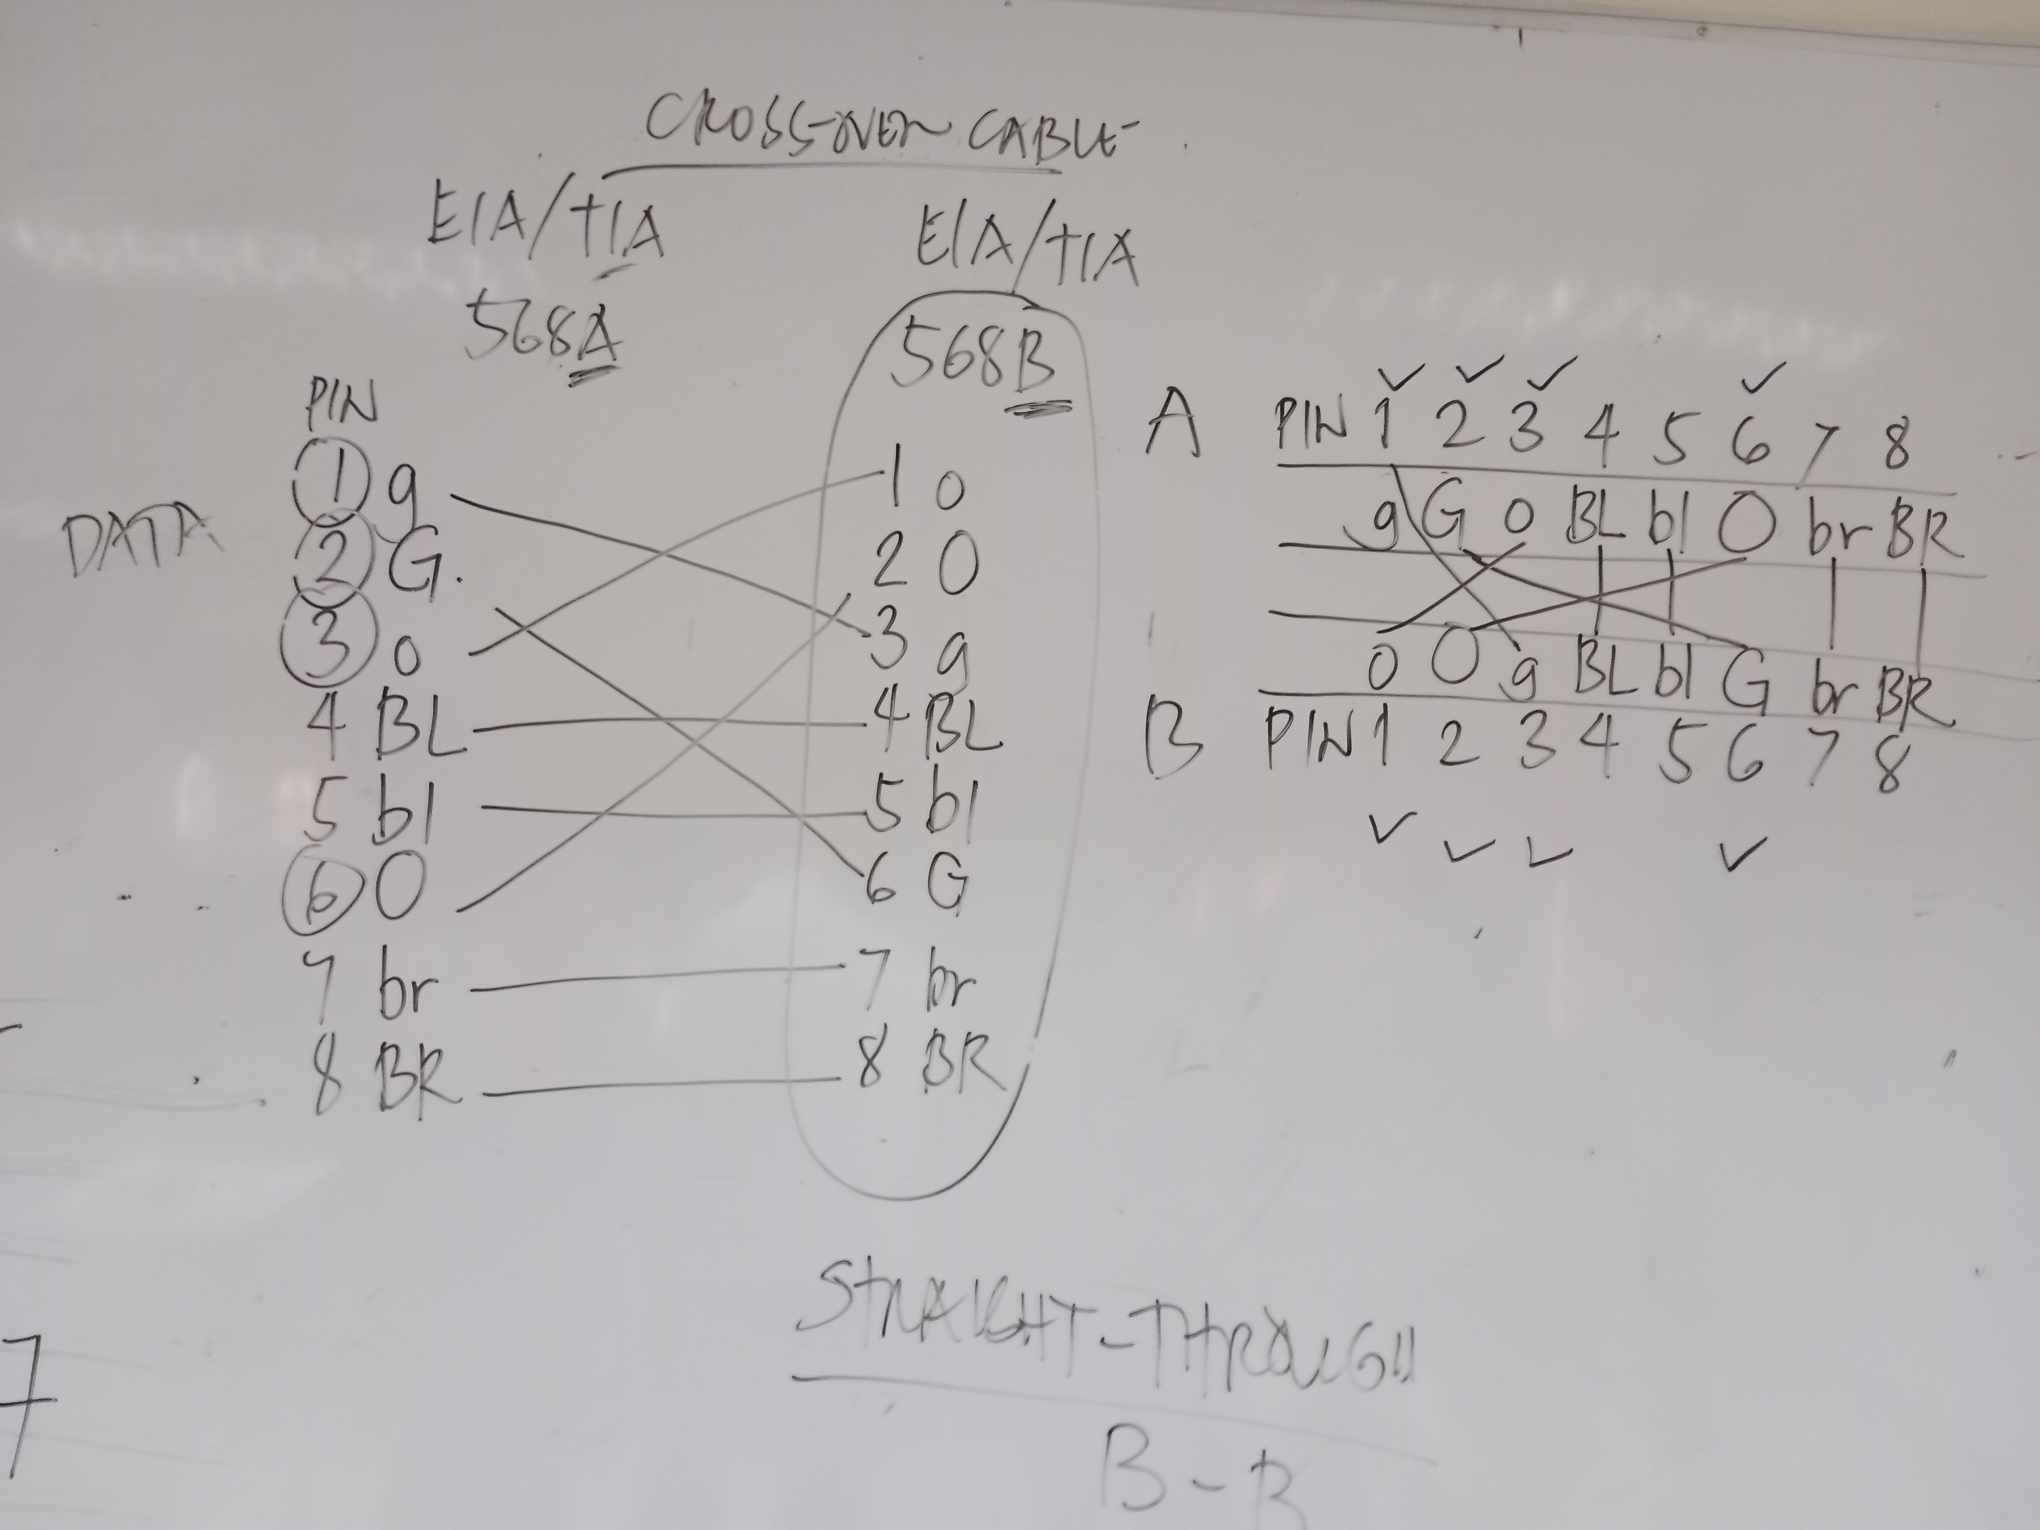 CROSS-OVER CABLE
EIA/TIA
568A
PIN
DATA
1 g
2 G.
3 o
4 BL
5 bl
6 O
7 br
8 BR
EIA/TIA
568B
1 o
2 O
3 g
4 BL
5 bl
6 G
7 br
8 BR
A PIN 1 2 3 4 5 6 7 8
g G o BL bl O br BR
o O g BL bl G br BR
B PIN 1 2 3 4 5 6 7 8
STRAIGHT-THROUGH
B-B
7